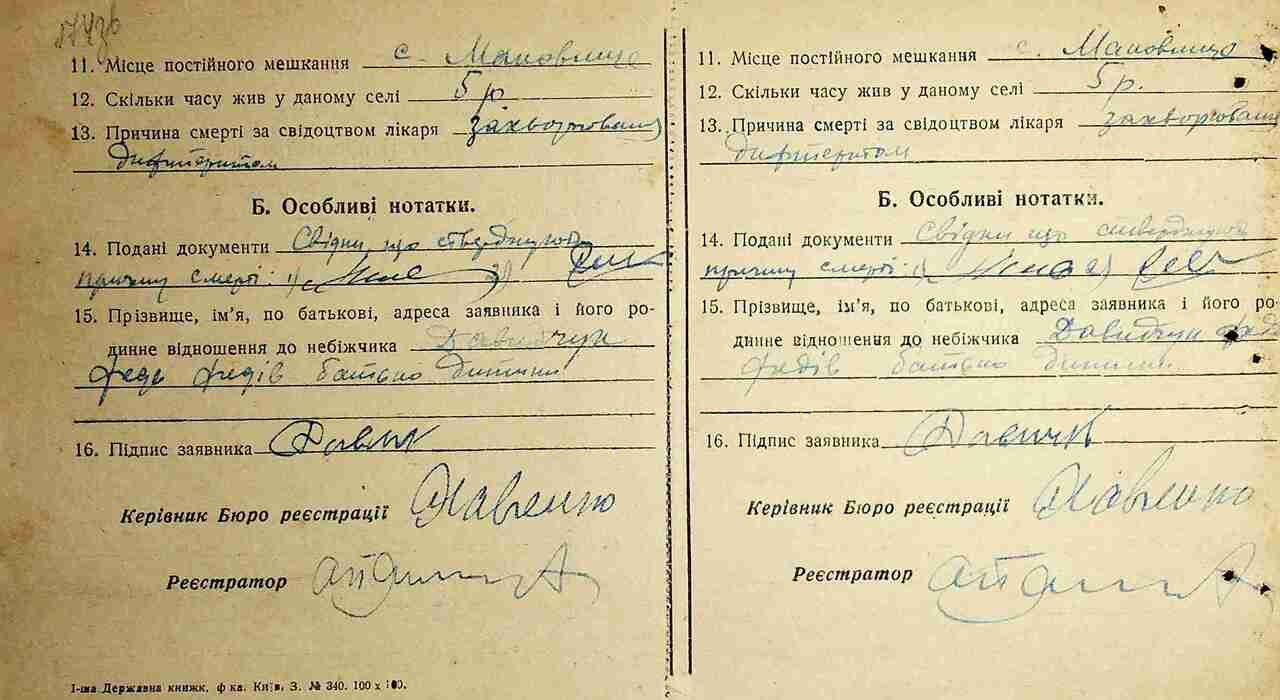 11. Місце постійного мешкання с. Маковище
12. Скільки часу жив у даному селі 5 р.
13. Причина смерті за свідоцтвом лікаря захворювання
дифтеритом
Б. Особливі нотатки.
14. Подані документи Свідки, що стверджують
причину смерті: 1) 2)
15. Прізвище, ім'я, по батькові, адреса заявника і його ро-
динне відношення до небіжчика Давидчук
Федь Федів батько дитини
16. Підпис заявника
Керівник Бюро реєстрації
Реєстратор
І-ша Державна книжк. ф-ка. Київ. З. № 340. 100 х 100.
11. Місце постійного мешкання с. Маковище
12. Скільки часу жив у даному селі 5 р.
13. Причина смерті за свідоцтвом лікаря захворювання
дифтеритом
Б. Особливі нотатки.
14. Подані документи Свідки що стверджують
причину смерті: 1) 2)
15. Прізвище, ім'я, по батькові, адреса заявника і його ро-
динне відношення до небіжчика Давидчук
Федів батько дитини
16. Підпис заявника
Керівник Бюро реєстрації
Реєстратор